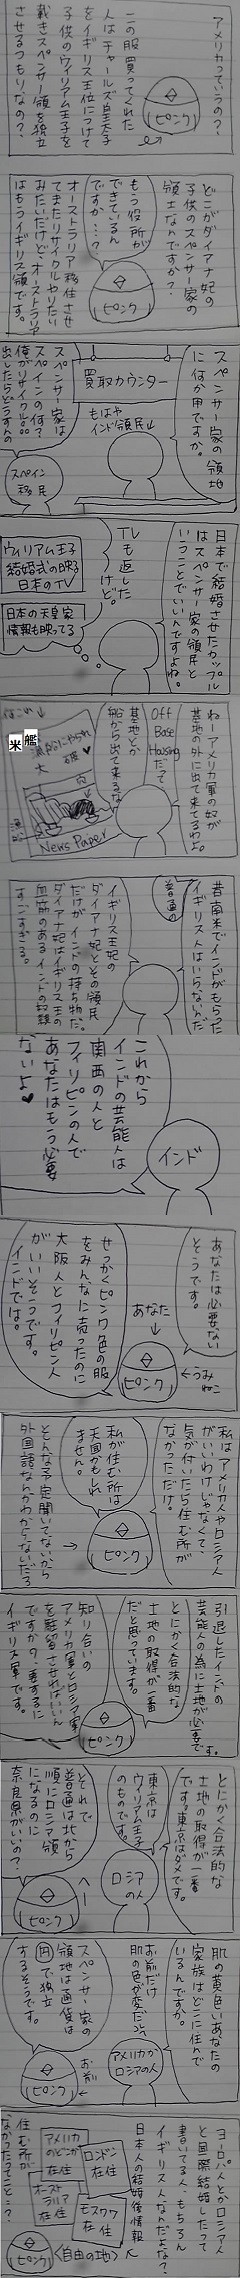 アメリカっていうの？、
この服買ってくれた
人はチャールズ皇太子
をイギリス王位につけて
子供のウィリアム王子を
載きスペンサー領を独立
させるつもりなの？、
ピンク
どこがダイアナ妃の
子供のスペンサー家の
領土なんですか？
もう役所が
できているん
ですか…？
オーストラリア移住させ
てまたリサイクルやりたい
みたいだけど、オーストラリア
はもうイギリス領です。
ピンク
スペンサー家の領地
に何か用ですか。
買取カウンター
もはや
インド領民↓
スペンサー家は
スペインの何？
スペイン
移民
日本で結婚させたカップル
はスペンサー家の領民と
いうことでいいんですよね。
TVも返した
けど。
ウィリアム王子
結婚式の映る
日本のTV
日本の天皇家
情報も映ってる
ねーアメリカ軍の奴が
基地の外に出て来てるわよ。
Off
Base
Housing
だって
基地とか
船から出て来るな
米
艦
News Paper
昔南米でインドがもらった
イギリス人はいらないんだ
普通の
イギリス王妃の
ダイアナ妃とその領民
だけがインドの持ち物だ。
ダイアナ妃はイギリス王の
血筋のあるインドの奴隷
すごすぎる。
これから
インドの芸能人は
関西の人と
フィリピンの人で
あなたはもう必要
ないよ♥
インド
あなたは必要ない
そうです。
あなた
↓
ピンク
←うみねこ
せっかくピンク色の服
をみんなに売ったのに
大阪人とフィリピン人
がいいそうです。
インドでは。
私はアメリカ人やロシア人
がいいわけじゃなくて、
気が付いたら住む所が
なかっただけ。
私が住む所は
天国かもしれ
ません。
→
ピンク
そんな予定聞いてないから
外国語なんかわからないだろ
引退したインドの
芸能人の為に土地が必要です。
とにかく合法的な
土地の取得が一番
だと思っています。
知り合いの
アメリカ軍とロシア軍
を駐留させればいいん
ですか？、要するに
イギリス軍です。
ピンク
とにかく合法的な
土地の取得が一番
です。東京はダメです。
東京は
ウィリアム王子
のものです。
ロシア
の人
それで
普通は北から
順にロシア領
になるのに
奈良県がいいの？
ピンク
肌の黄色いあなたの
家族はどこに住んで
いるんですか。
お前だけ
肌の色が変だぞ
アメリカか
ロシアの人
スペンサー家の
領地は通貨は
円で独立
するそうです。
お前
↓
ピンク
ヨーロッパ人とかロシア人
と国際結婚したって
書いてる人、もちろん
イギリス人なんだよな？
日本人の結婚後情報
ロンドン
在住
アメリカ
のどこか
在住
オースト
ラリア
在住
モスクワ
在住
住む所が
なかったってこと？
ピンク
〈自由の地〉